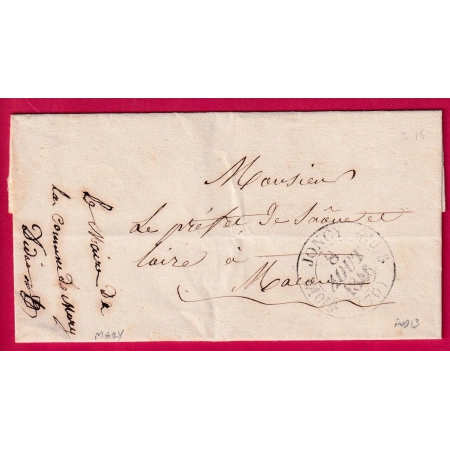 Monsieur
Le préfet de Saône et
Loire à
Macon
Le Maire de
la Commune de Mary
JONCY
8
AOUT
1846
MARY
IND 13